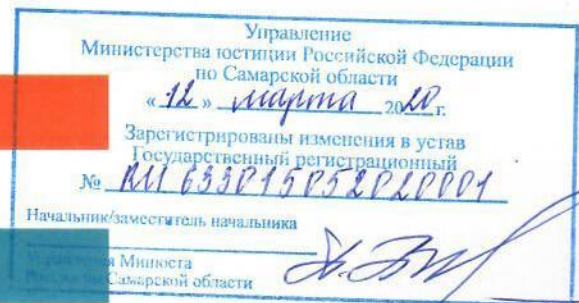 Управление
Министерства юстиции Российской Федерации
по Самарской области
« 12 » марта 2020 г.
Зарегистрированы изменения в устав
Государственный регистрационный
№ RU 633015052020001
Начальник/заместитель начальника
Минюста
Самарской области